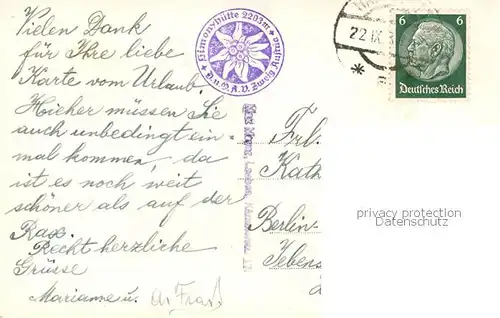 Vielen Dank
für Ihre liebe
Karte vom Urlaub.
Hieher müssen Sie
auch unbedingt ein-
mal kommen, da
ist es noch weit
schöner als auf der
Rax.
Recht herzliche
Grüsse
Marianne u.
Simonyhütte 2203m
D.u.Ö.A.V. Zweig Austria
22.IX.
6 6
Deutsches Reich
Frl.
Kath
Berlin-
privacy protection
Datenschutz